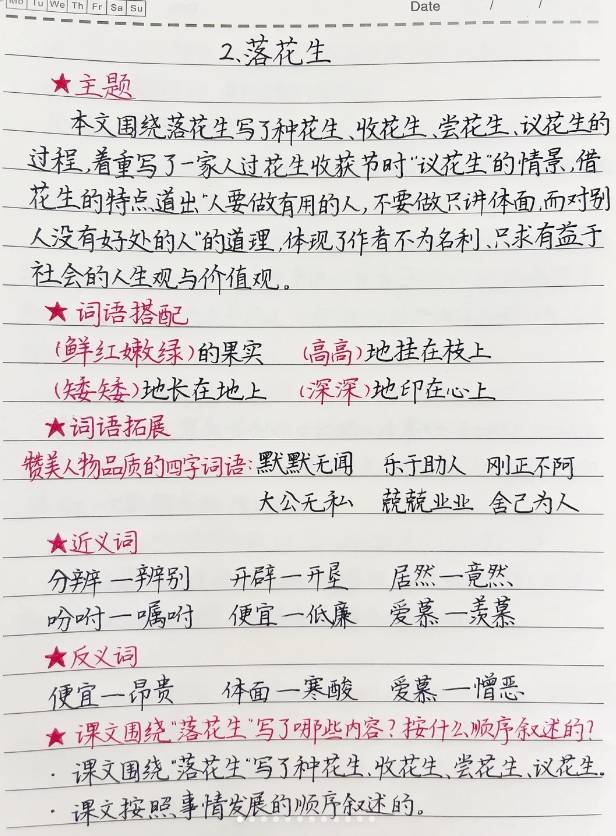 Mo Tu We Th Fr Sa Su Date / /
2、落花生
★主题
本文围绕落花生写了种花生、收花生、尝花生、议花生的
过程,着重写了一家人过花生收获节时"议花生"的情景,借
花生的特点道出"人要做有用的人,不要做只讲体面,而对别
人没有好处的人"的道理,体现了作者不为名利、只求有益于
社会的人生观与价值观。
★词语搭配
(鲜红嫩绿)的果实 (高高)地挂在枝上
(矮矮)地长在地上 (深深)地印在心上
★词语拓展
赞美人物品质的四字词语:默默无闻 乐于助人 刚正不阿
大公无私 兢兢业业 舍己为人
★近义词
分辨—辨别 开辟—开垦 居然—竟然
吩咐—嘱咐 便宜—低廉 爱慕—羡慕
★反义词
便宜—昂贵 体面—寒酸 爱慕—憎恶
★课文围绕"落花生"写了哪些内容?按什么顺序叙述的?
·课文围绕"落花生"写了种花生、收花生、尝花生、议花生。
·课文按照事情发展的顺序叙述的。